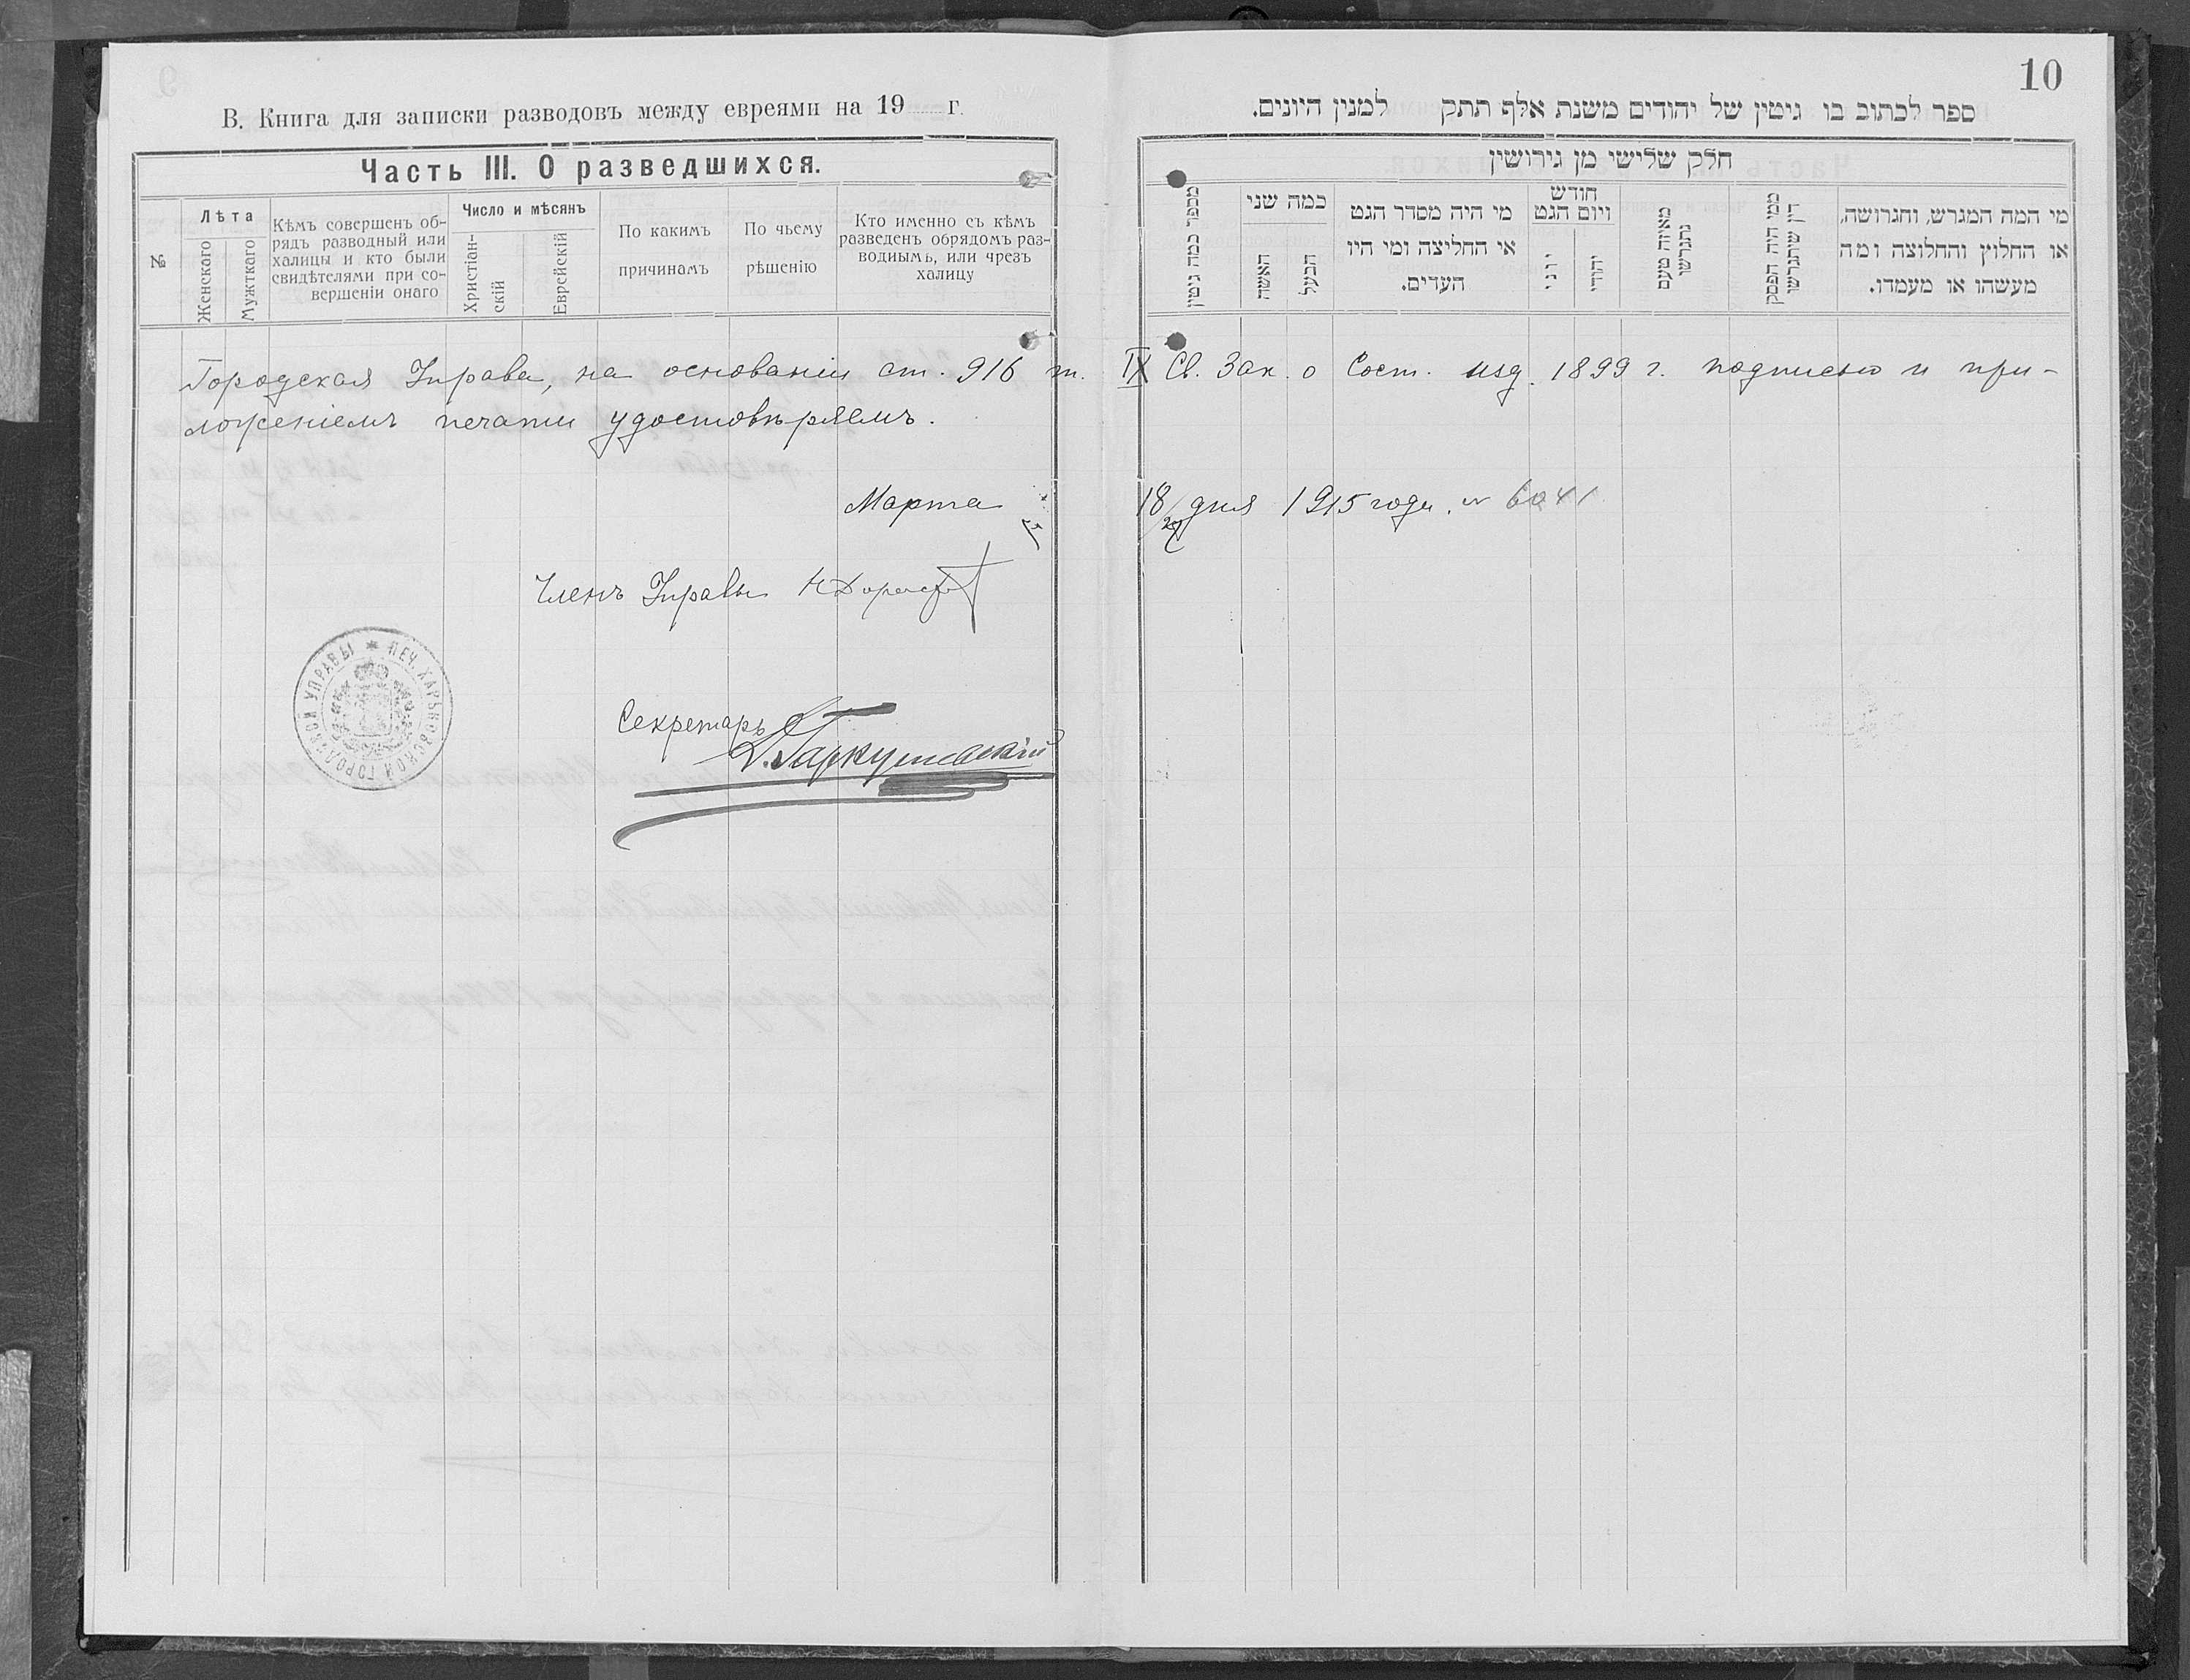 10
В. Книга для записки разводовъ между евреями на 19 г.
Часть III. О разведшихся.
№
Лѣта
Женскаго
Мужткаго
Кѣмъ совершенъ об-
рядъ разводный или
халицы и кто были
свидѣтелями при со-
вершеніи онаго
Число и мѣсянъ
Христіан-
скій
Еврейскій
По какимъ
причинамъ
По чьему
рѣшенію
Кто именно съ кѣмъ
разведенъ обрядомъ раз-
водиымъ, или чрезъ
халицу
ספר לכתוב בו גיטין של יהודים משנת אלף תתק למנין היונים.
חלק שלישי מן גירושין
מספר כמה גיטין
כמה שני
האשה
הבעל
מי היה מסדר הגט
אי החליצה ומי היו
העדים.
חודש
ויום הגט
יוני
יהודי
מאיזה טעם
נתגרשו
ממי היה הפסק
דין שיתגרשו
מי המה המגרש, והגרושה,
או החלוץ והחלוצה ומה
מעשהו או מעמדו.
Городская Управа, на основаніи ст. 916 т. IX Св. Зак. о Сост. изд. 1899 г. подписью и при-
ложеніемъ печати удостовѣряемъ.
Марта 18 дня 1915 года. № 6041
Членъ Управы
Секретарь
ПЕЧ. ХАРЬКОВСКОЙ ГОРОДСКОЙ УПРАВЫ